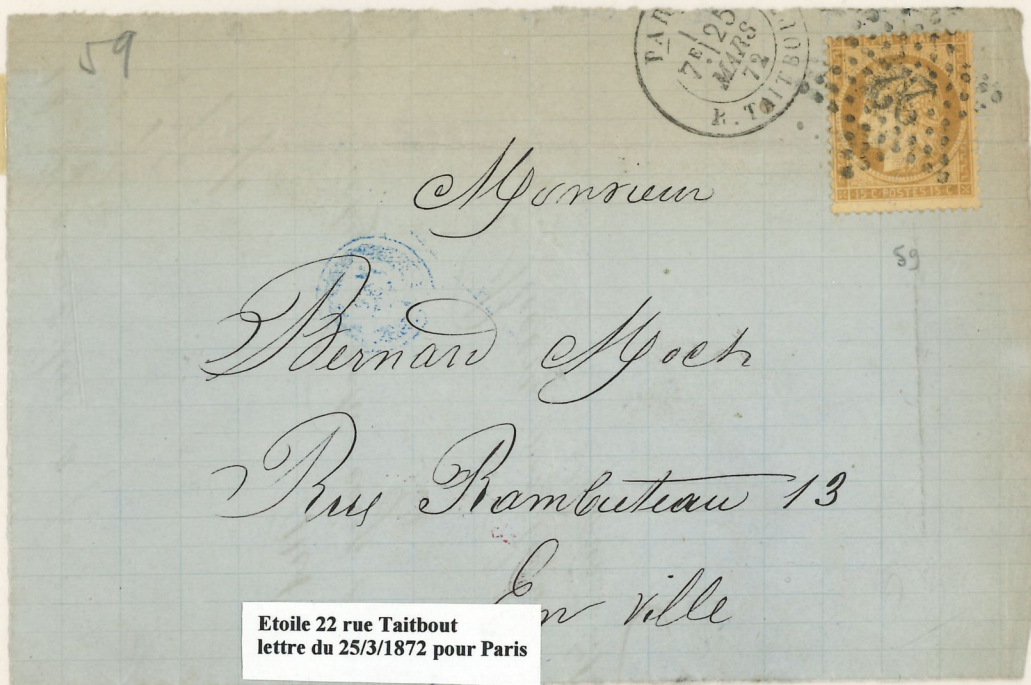 59
PARIS
7E/1
25
MARS
72
R. TAITBOUT
22
15·C·POSTES·15·C
Monsieur
59
Bernard Moch
Rue Rambuteau 13
En ville
Etoile 22 rue Taitbout
lettre du 25/3/1872 pour Paris